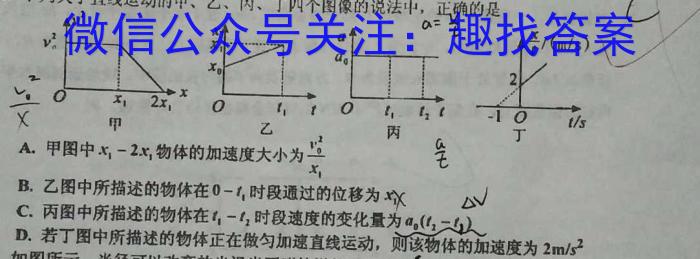 下列关于直线运动的甲、乙、丙、丁四个图像的说法中，正确的是
微信公众号关注：趣找答案
v₀² x₀ a a₀ 2
O x₁ 2x₁ x O t₁ t O t₁ t₂ t -1 O t/s
甲 乙 丙 丁
A. 甲图中x₁－2x₁物体的加速度大小为v₀²/x₁
B. 乙图中所描述的物体在0－t₁时段通过的位移为x₁
C. 丙图中所描述的物体在t₁－t₂时段速度的变化量为a₀(t₂－t₁)
D. 若丁图中所描述的物体正在做匀加速直线运动，则该物体的加速度为2m/s²